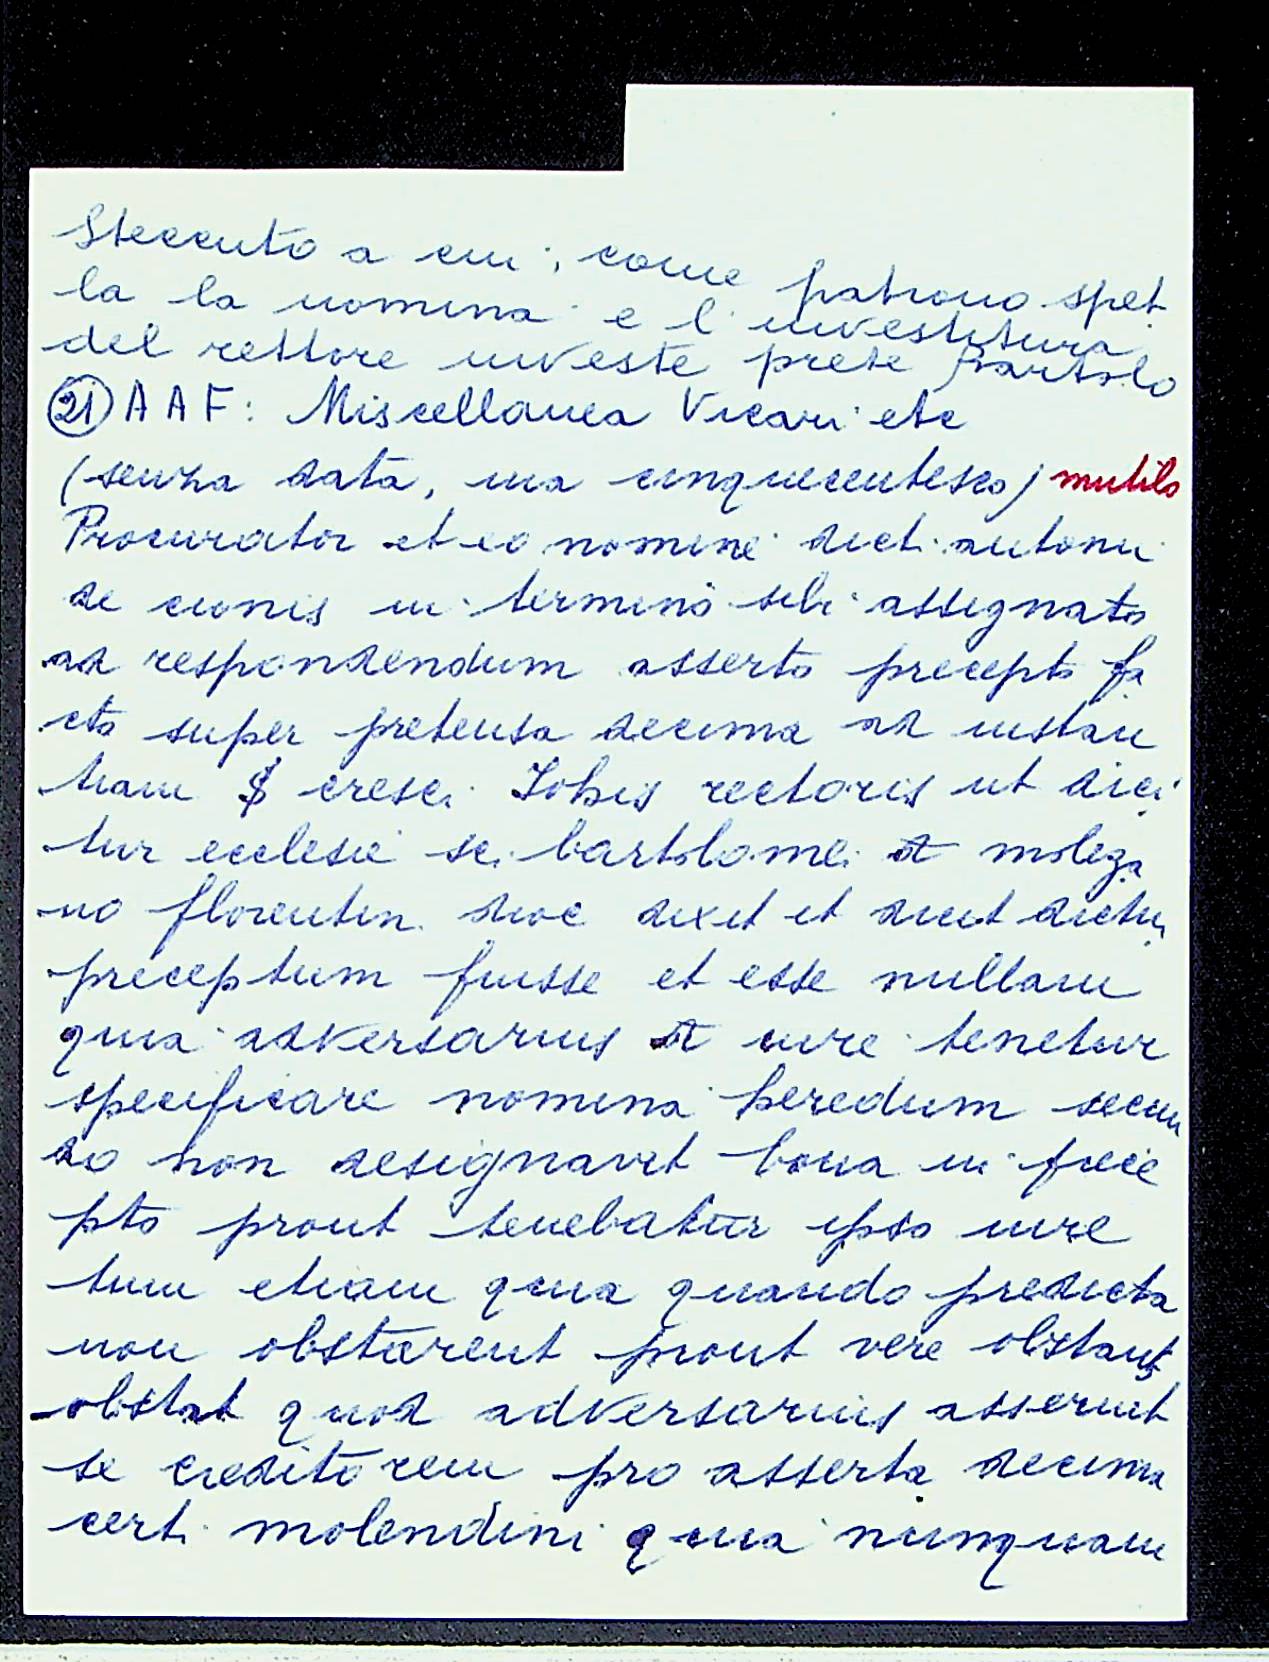 Steccuto a cui, come patrono spet
la la nomina e l'investitura
del rettore investe prete Bartolo
(21) A A F: Miscellanea Vicari etc
(senza data, ma cinquecentesco) mutilo
Procurator et eo nomine dicti antonii
de cionis in termino sibi assignato
ad respondendum asserto precepto fa
cto super pretensa decima ad instan
tiam cresci Johis rectoris ut dici
tur ecclesie sci bartolomei molez
no florentin dioc dixit et dicit dictu
preceptum fuisse et esse nullam
quia adversarius iure tenetur
specificare nomina heredum secun
do non designavit bona in prece
pto prout tenebatur ipso iure
tum etiam quia quando predicta
non obstarent prout vere obstant
obstat quod adversarius asseruit
se creditorem pro asserta decima
certi molendini quia nunquam